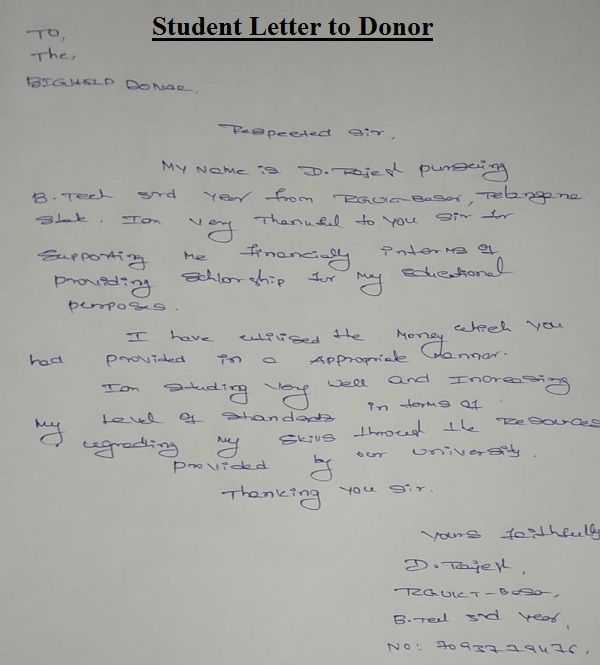 Student Letter to Donor
TO,
The,
BIGHELP DONAR.
Respected Sir,
My Name is D. Rajesh pursuing
B.Tech 3rd Year from RGUKT-Basar, Telangana
State. I am very Thankful to you Sir for
Supporting Me financially interms of
providing Schlorship for My Educational
purposes.
I have utilised the Money which you
had provided in a Appropriate Mannar.
I am Studing very well and Increasing
My Level of Standards in terms of
upgrading My Skills through the Resources
provided by our University.
Thanking you Sir.
Yours faithfully
D. Rajesh,
RGUKT-Basar,
B.Tech 3rd Year,
NO: 7093779476.